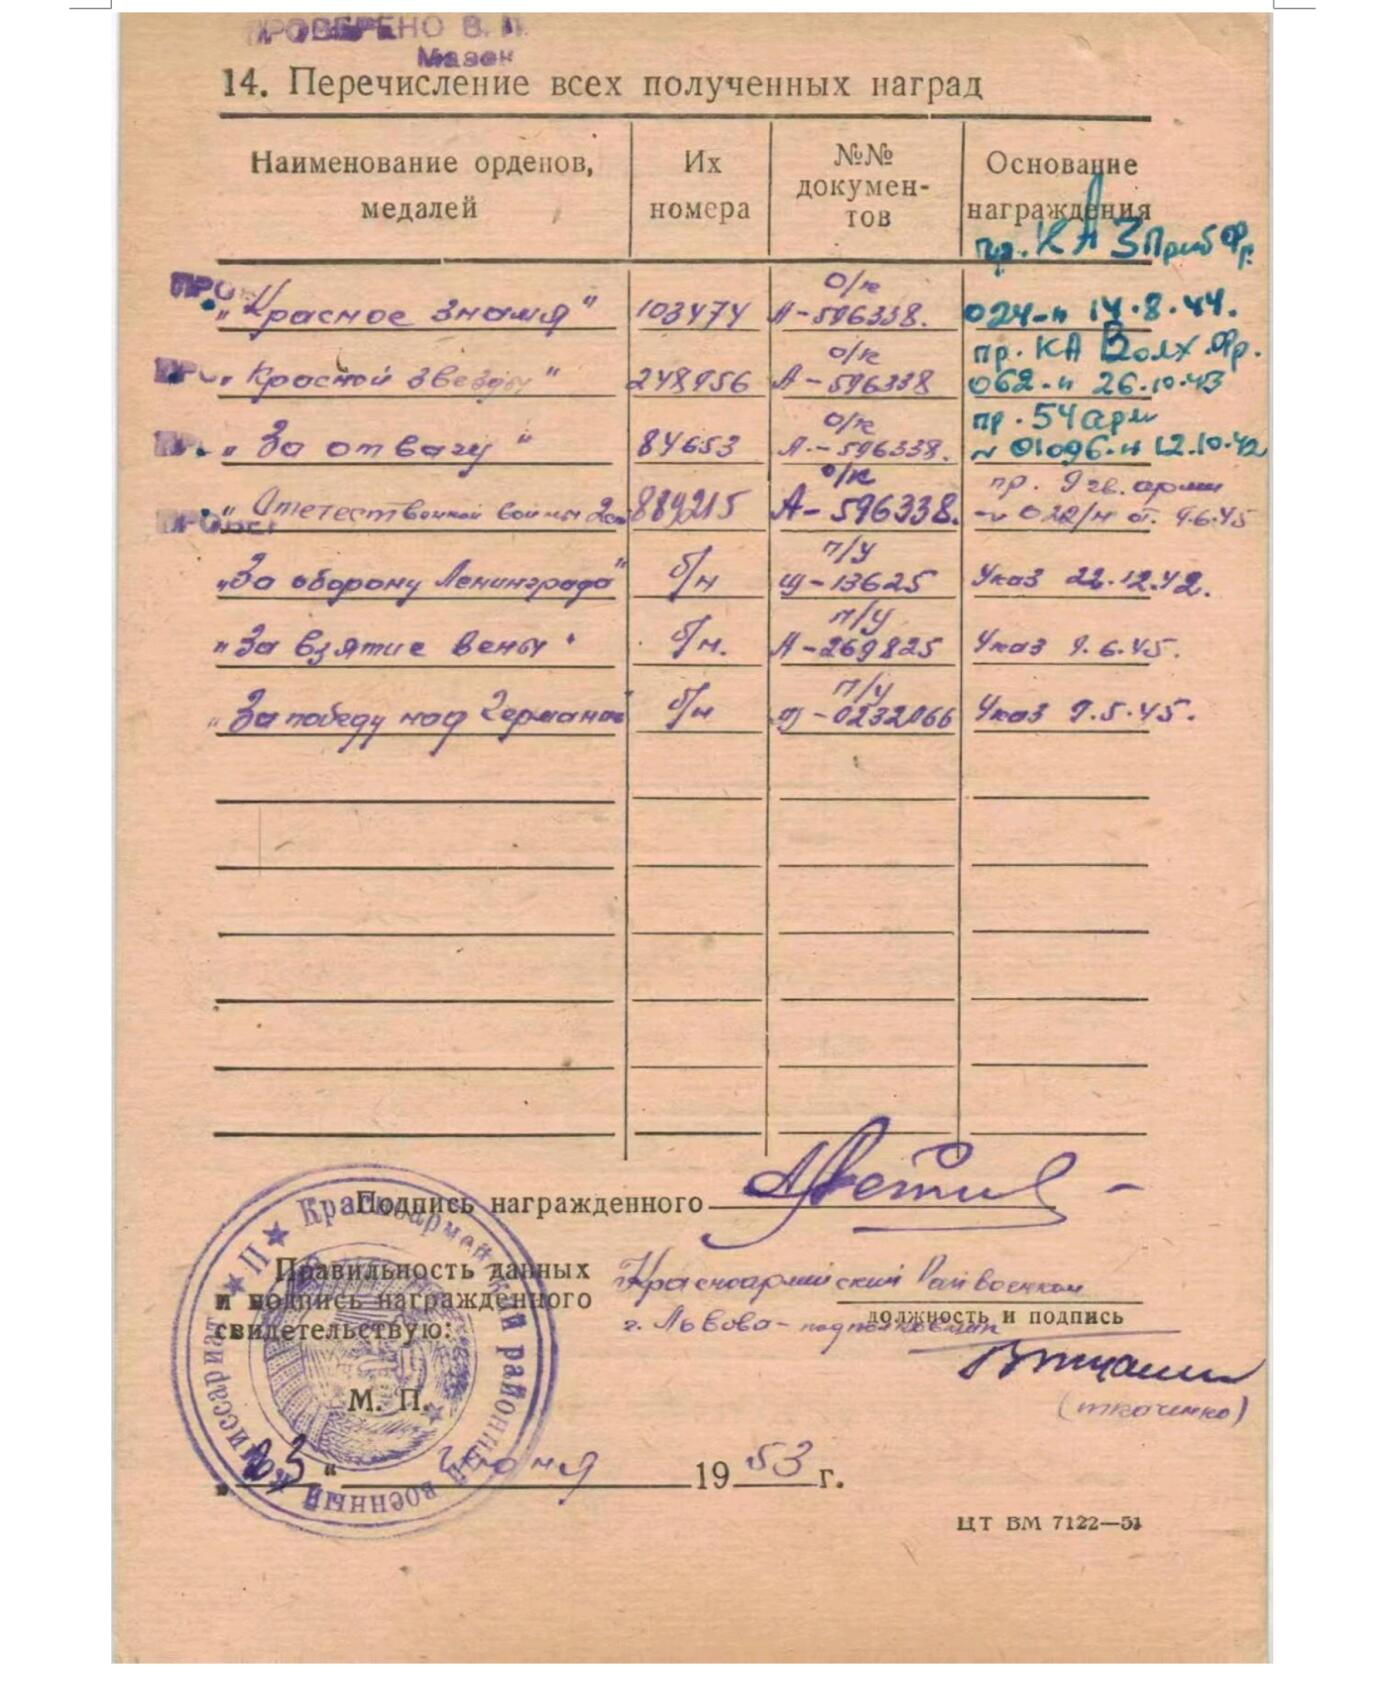 ПРОВЕРЕНО В. П.
14. Перечисление всех полученных наград
Наименование орденов, медалей
Их номера
№№ докумен-тов
Основание награждения
пр. КА 3 Приб Фр.
"Красное знамя" 103474 о/к А-596338. 024-н 14.8.44.
пр. КА Волх. Фр.
"Красной звезды" 248956 о/к А-596338 062-н 26.10.43
пр. 54 арм
"За отвагу" 84653 о/к А-596338. № 01096-н 12.10.42
пр. 9 гв. армии
"Отечественной войны 2 ст 889215 о/к А-596338. № 022/н от. 9.6.45
"За оборону Ленинграда" б/н п/у 13625 Указ 22.12.42.
"За взятие Вены" б/н. п/у А-269825 Указ 9.6.45.
"За победу над Германией б/н п/у 0232066 Указ 9.5.45.
Подпись награжденного
Правильность данных
и подпись награжденного
свидетельствую:
Красноармейский Райвоенком
должность и подпись
г. Львова - подполковник
(Ткаченко)
М. П.
Красноармейский районный военный комиссариат
"03" июня 1953 г.
ЦТ ВМ 7122—51